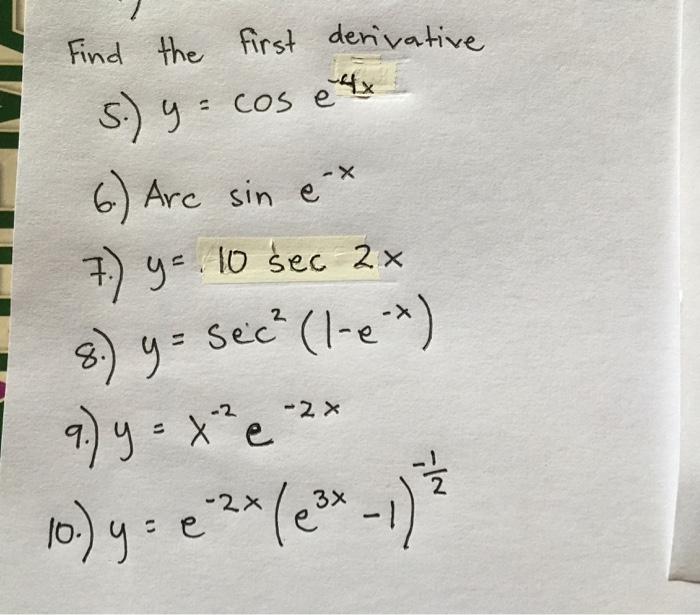 Find the first derivative
5.) y = cos e^-4x
6.) Arc sin e^-x
7.) y = 10 sec 2x
8.) y = sec² (1-e^-x)
9.) y = x^-2 e^-2x
10.) y = e^-2x (e^3x -1)^-1/2